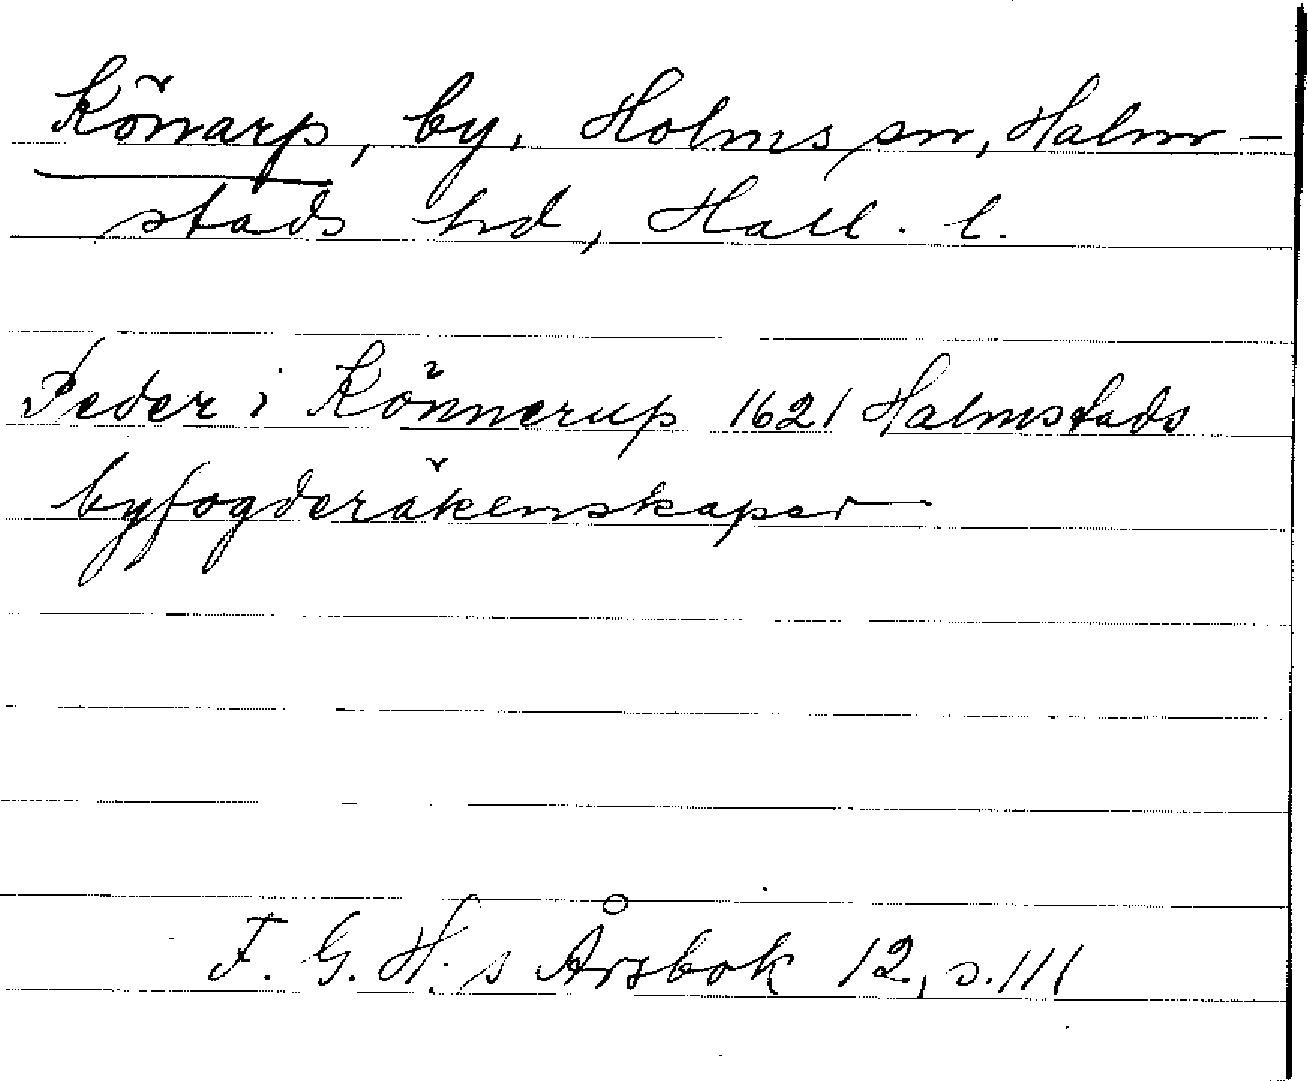 Könarp, by, Holms sn, Halm-
stads hd, Hall. l.
Peder i Könnerup 1621 Halmstads
byfogderäkenskaper
F. G. H. s Årsbok 12, s. 111